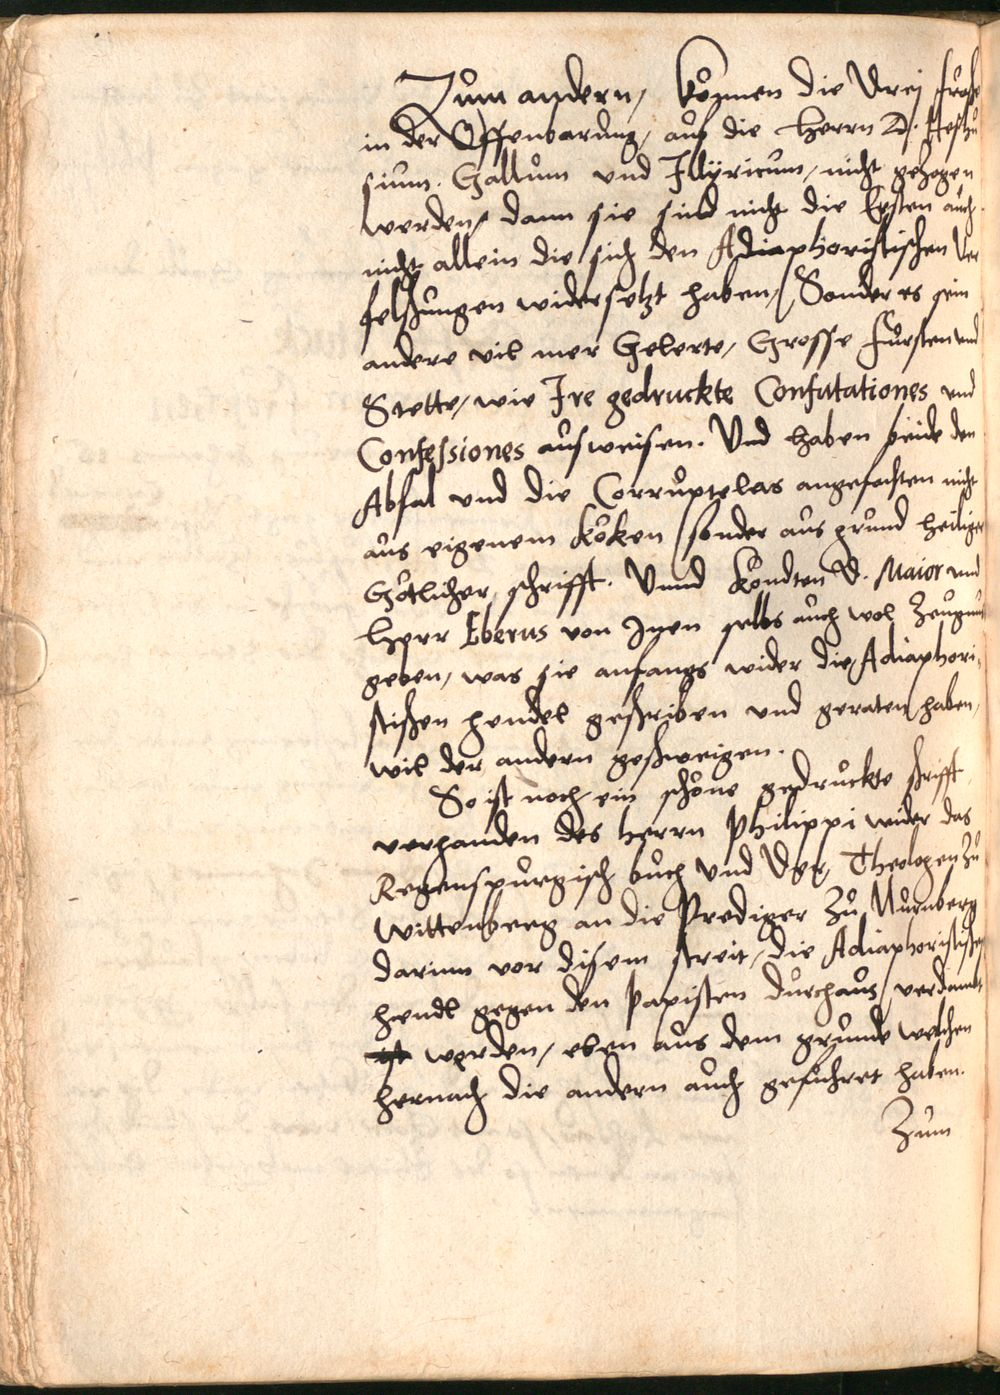 Zum andern, können die drej frösche
in der Offenbarung, auf die Herrn D. Heshu
sium. Gallum und Illÿricum, nicht gezogen
werden, dann sie sind nicht die Ersten auch
nicht allein die sich den Adiaphoristischen Ver
felschungen widersetzt haben, Sonder es sein
andere vil mer Gelerte, Grosse Fürsten und
Stette, wie Ire gedruckte Confutationes und
Confessiones ausweisen. Und haben beide den
Abfal und die Corruptelas angefochten nicht
aus eigenem köken sonder aus grund heiliger
Götlicher schrifft. Unnd köndten D. Maior und
Herr Eberus von Inen selbs auch wol Zeugnus
geben, was sie anfangs wider die Adiaphori-
stischen hendel geschriben und geraten haben,
wil der andern geschweigen.
So ist noch ein schöne gedruckte schrifft
verhanden des Herrn Philippi wider das
Regenspurgisch buch und der Theologen zu
Wittenberg an die Prediger zu Nurnberg
darinn vor disem streit, die Adiaphoristischen
hendl gegen den Papisten durchaus verdambt
ist werden, eben aus dem grunde welchen
hernach die andern auch gefuhret haben.
Zum